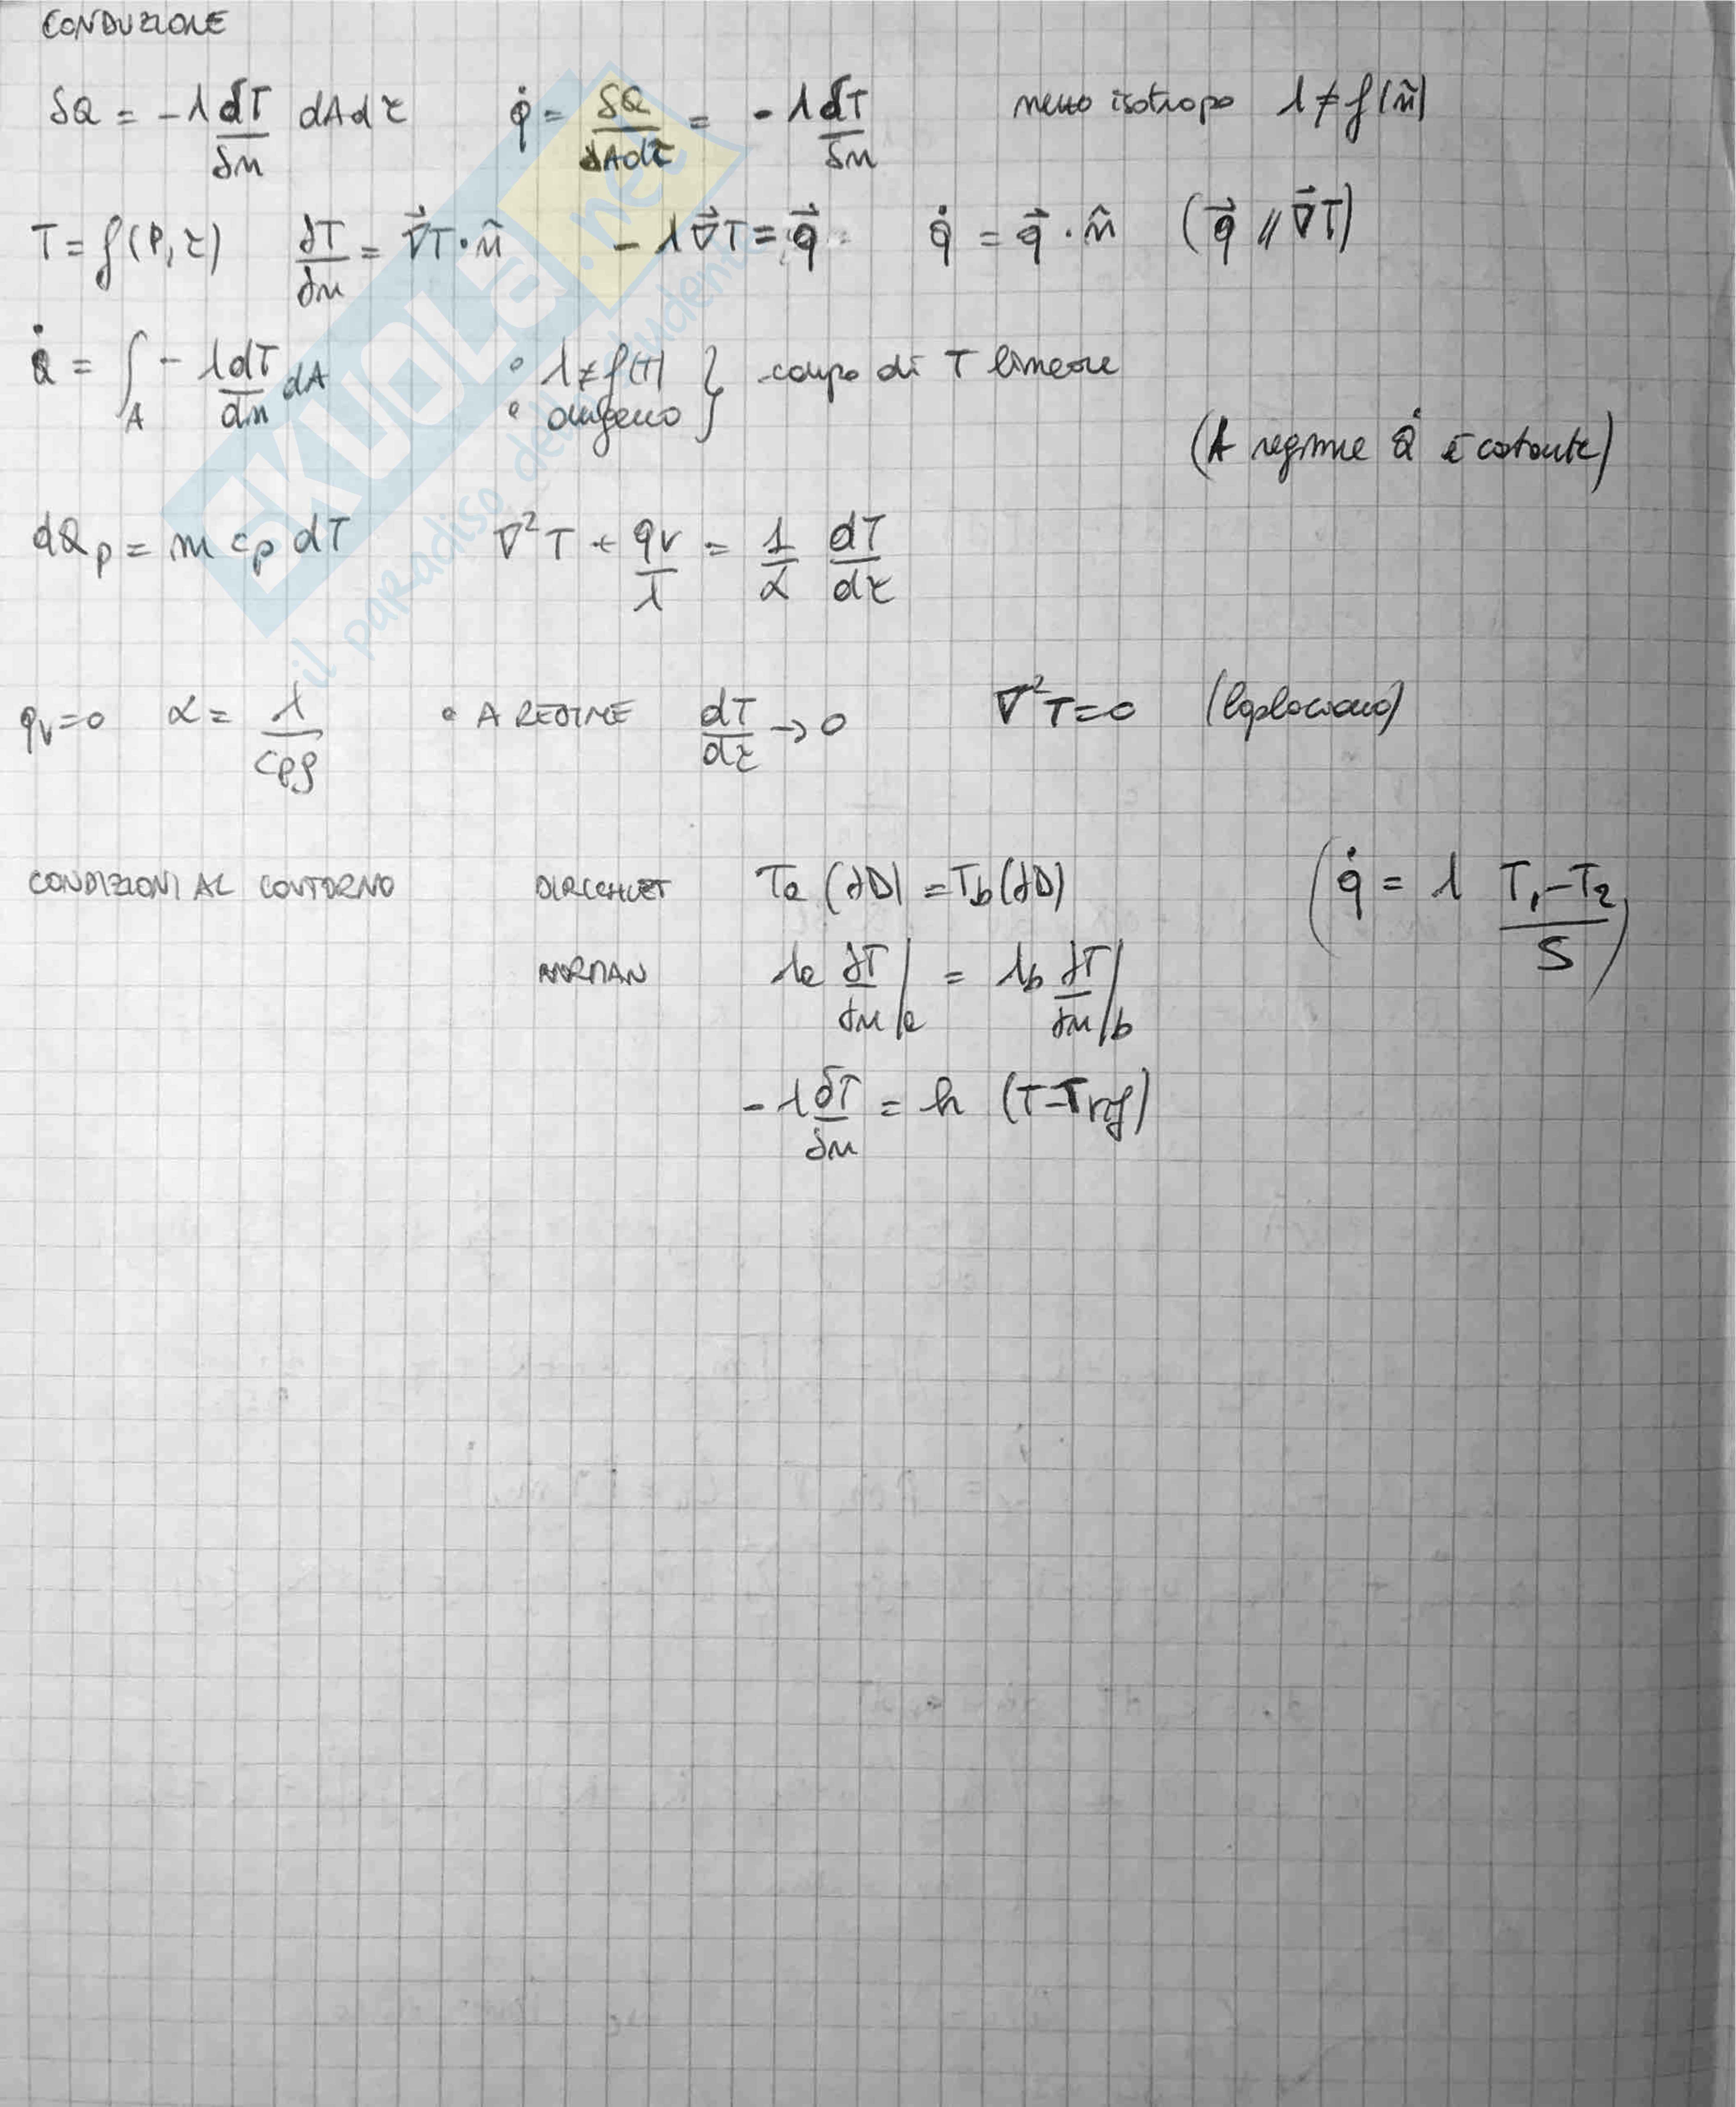 CONDUZIONE
δQ = -λ δT/δn dA dτ   q̇ = δQ/dAdτ = -λ δT/δn   mezzo isotropo λ ≠ f(n̂)
T = f(P, τ)   ∂T/∂n = ∇⃗T · n̂   -λ∇⃗T = q⃗   q̇ = q⃗ · n̂   (q⃗ // ∇⃗T)
Q̇ = ∫_A -λ dT/dn dA   • λ ≠ f(T) • omogeneo } campo di T lineare
(A regime Q̇ è costante)
dQp = m cp dT   ∇²T + qv/λ = 1/α dT/dτ
qv=0   α = λ/cpρ   • A REGIME   dT/dτ → 0   ∇²T=0   (laplaciano)
CONDIZIONI AL CONTORNO   DIRICHLET   Ta (∂D) = Tb (∂D)   (q̇ = λ T1-T2/S)
λa ∂T/∂n|a = λb ∂T/∂n|b
-λ δT/δn = h (T-Trif)
SKUOLA.net
il paradiso dello studente